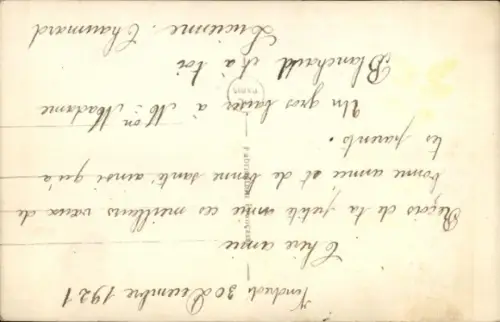 Vendredi 30 Decembre 1921
Chère amie
Reçois de ta petite amie ces meilleurs vœux de
bonne année et de bonne santé ainsi qu'à
tes parents.
Un gros baiser à Mon Madame
Blanchard et à toi
Lucienne. Chaumard
PARIS